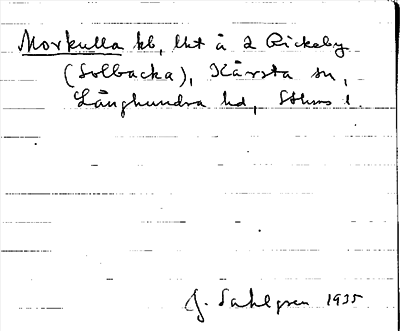 Morkulla kb, lht å 2 Rickeby
(Solbacka), Kårsta sn,
Långhundra hd, Sthms l.
J. Sahlgren 1935